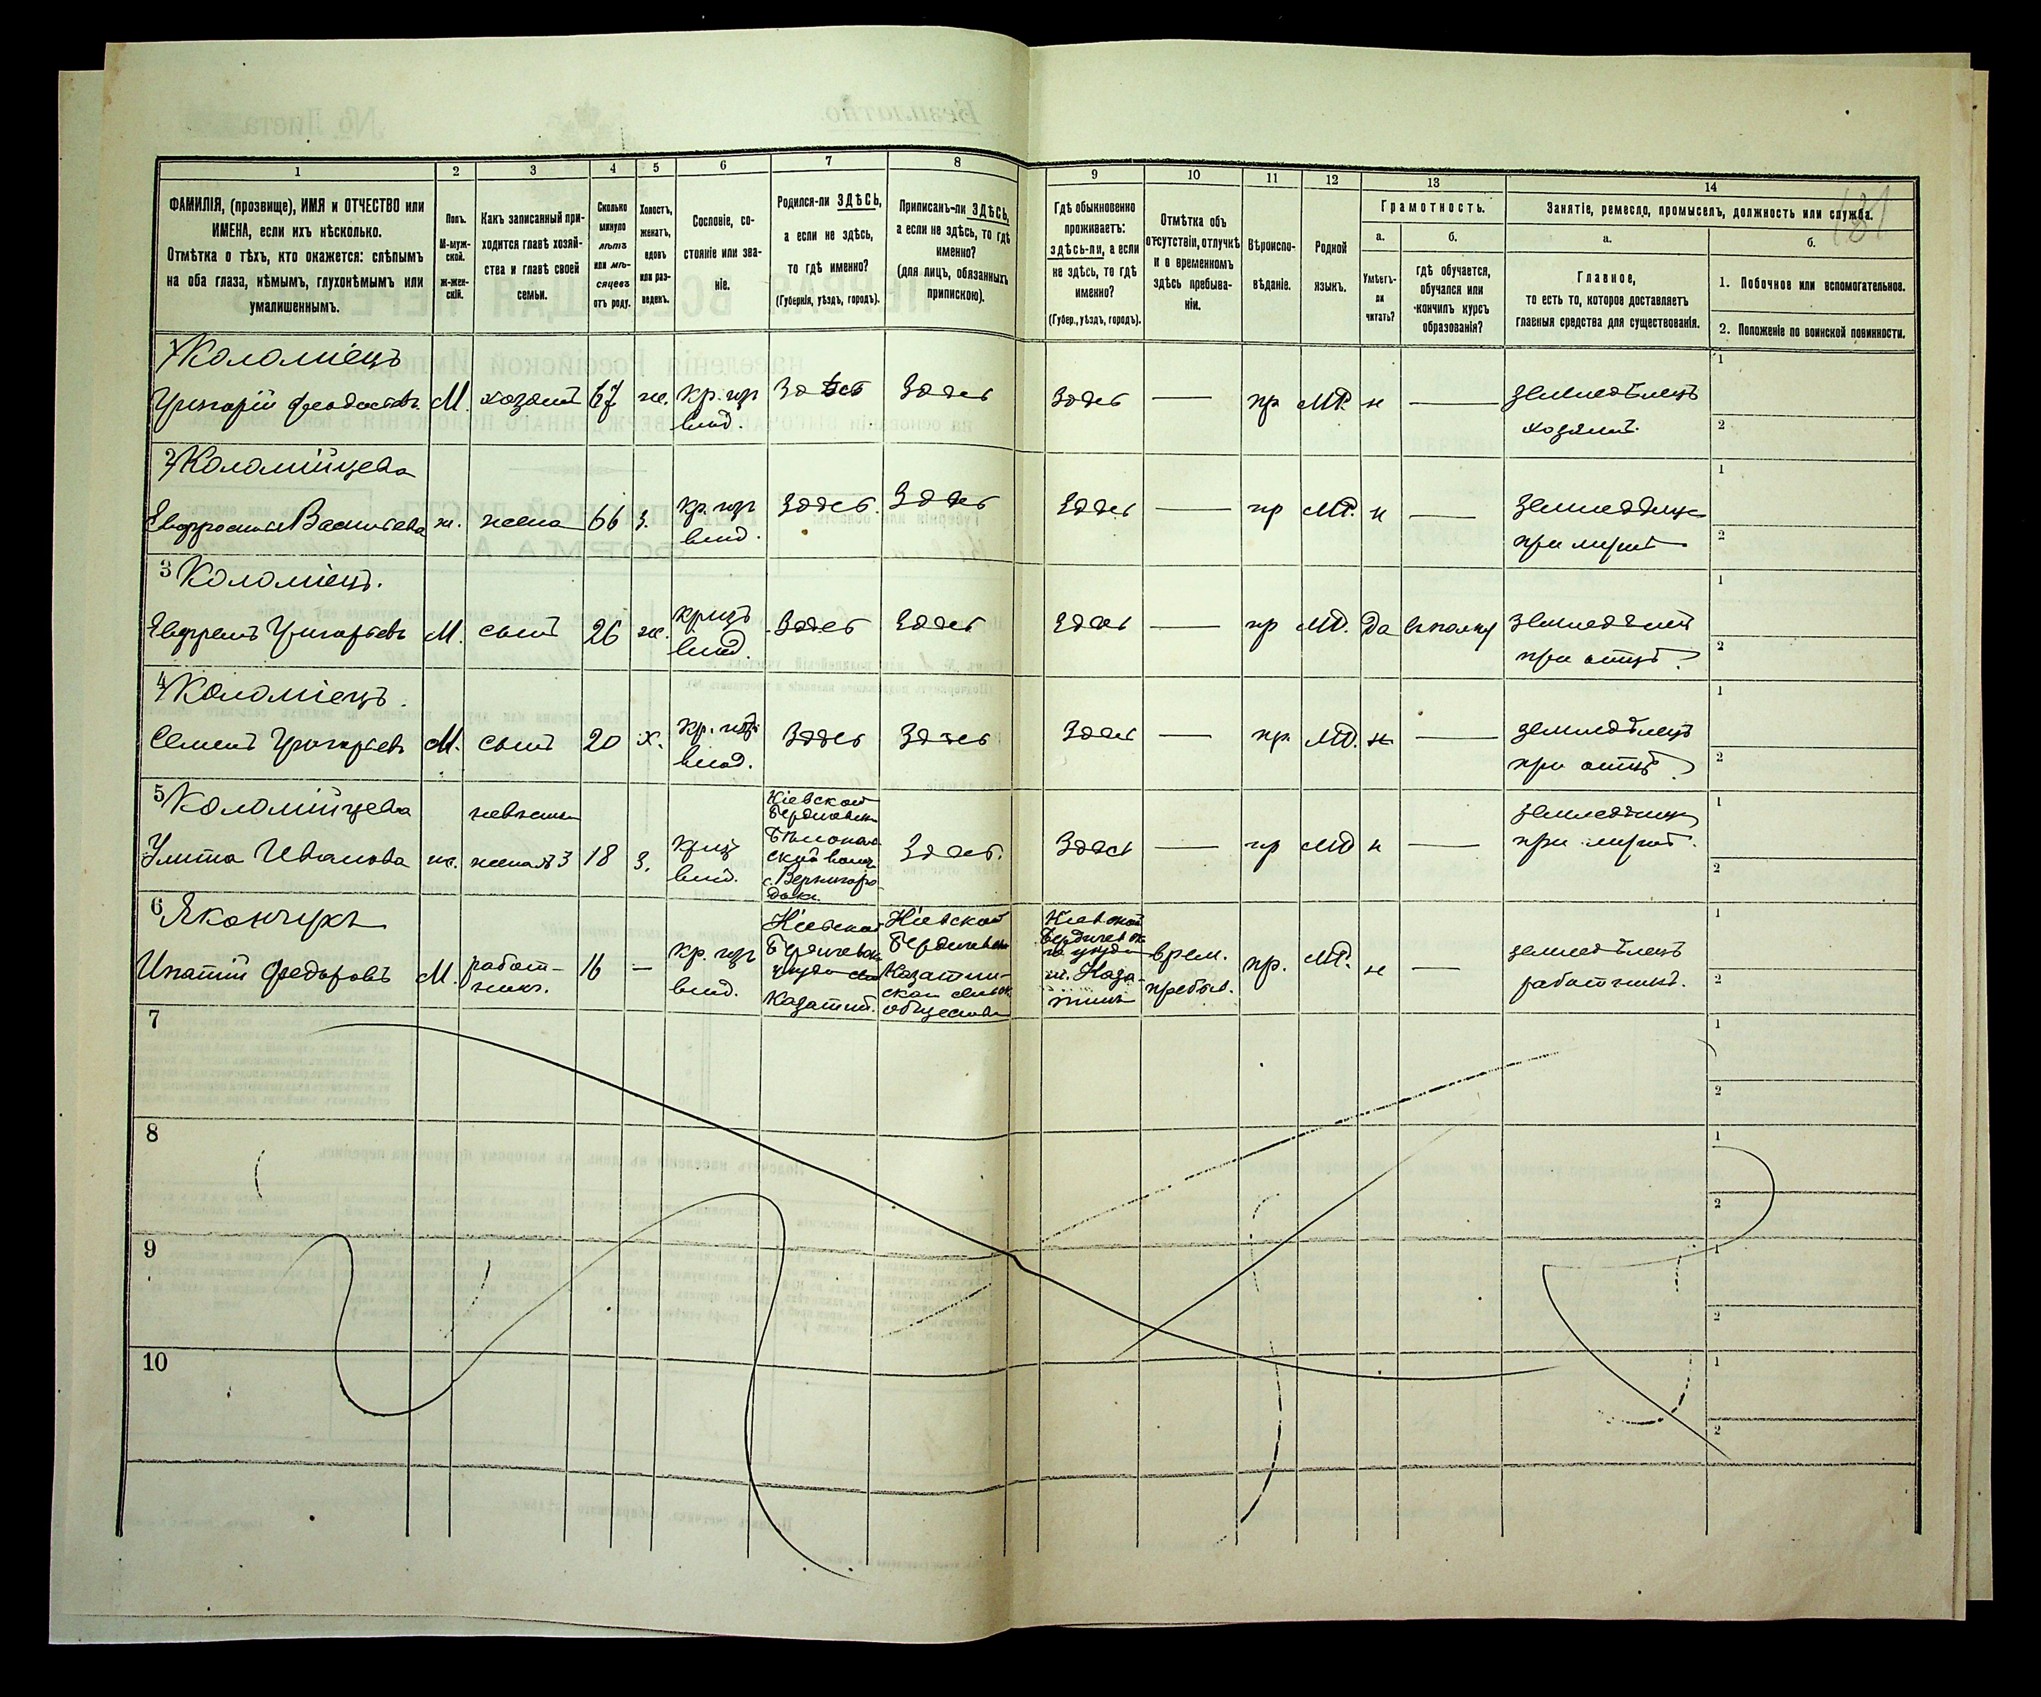 131
1 2 3 4 5 6 7 8 9 10 11 12 13 14
ФАМИЛІЯ, (прозвище), ИМЯ и ОТЧЕСТВО или
ИМЕНА, если ихъ нѣсколько.
Отмѣтка о тѣхъ, кто окажется: слѣпымъ
на оба глаза, нѣмымъ, глухонѣмымъ или
умалишеннымъ.
Полъ.
М-муж-
ской.
ж-жен-
скій.
Какъ записанный при-
ходится главѣ хозяй-
ства и главѣ своей
семьи.
Сколько
минуло
лѣтъ
или мѣ-
сяцевъ
отъ роду.
Холостъ,
женатъ,
вдовъ
или раз-
веденъ.
Сословіе, со-
стояніе или зва-
ніе.
Родился-ли ЗДѢСЬ,
а если не здѣсь,
то гдѣ именно?
(Губернія, уѣздъ, городъ).
Приписанъ-ли ЗДѢСЬ,
а если не здѣсь, то гдѣ
именно?
(для лицъ, обязанныхъ
припискою).
Гдѣ обыкновенно
проживаетъ:
здѣсь-ли, а если
не здѣсь, то гдѣ
именно?
(Губер., уѣздъ, городъ).
Отмѣтка объ
отсутствіи, отлучкѣ
и о временномъ
здѣсь пребыва-
ніи.
Вѣроиспо-
вѣданіе.
Родной
языкъ.
Грамотность.
а.
Умѣетъ-
ли
читать?
б.
гдѣ обучается,
обучался или
кончилъ курсъ
образованія?
Занятіе, ремесло, промыселъ, должность или служба.
а.
Главное,
то есть то, которое доставляетъ
главныя средства для существованія.
б.
1. Побочное или вспомогательное.
2. Положеніе по воинской повинности.
1 Коломіецъ
Григорій Феодосіевъ М. хозяинъ 67 ж. кр. изъ Здѣсь Здѣсь Здѣсь — пр МР. н — земледѣлецъ
влад. хозяинъ
2 Коломійцева
Евфросинія Васильева ж. жена 66 з. кр. изъ Здѣсь Здѣсь Здѣсь — пр МР. н —
влад. при мужѣ
3 Коломіецъ.
Евфремъ Григорьевъ М. сынъ 26 ж. кр изъ Здѣсь Здѣсь Здѣсь — пр МР. да
влад. при отцѣ
4 Коломіецъ.
Семенъ Григорьевъ М. сынъ 20 х. кр. изъ Здѣсь Здѣсь Здѣсь — пр МР. н — земледѣлецъ
влад. при отцѣ
5 Коломійцева невѣстка
Улита Иванова ж. жена № 3 18 з. кр изъ
влад.
Кіевской
Бердичевск
с. Вернигоро-
докъ
Здѣсь. Здѣсь — пр МР н — при мужѣ.
6 Якончукъ
Ипатій Федоровъ М. работ-
никъ.
16 — кр. изъ
влад.
Кіевской
Бердичевск
уѣзда
Казатин.
Кіевской
Бердичевск
Казатин-
ской
общества
Кіевской
Бердичевск
го уѣзда
м. Каза-
тинъ
врем.
пребыв.
пр. МР. н — земледѣлецъ
работникъ.
7
8
9
10
1
2
1
2
1
2
1
2
1
2
1
2
1
2
1
2
1
2
1
2